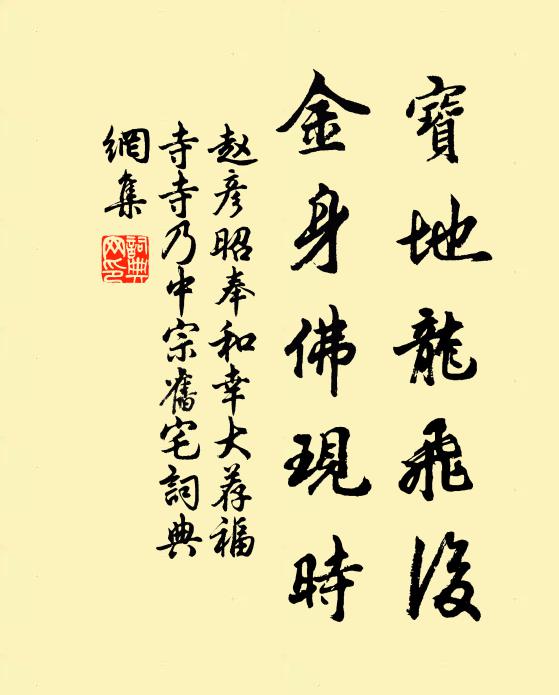 寶地龍飛後
金身佛現時
赵彦昭奉和幸大荐福
寺寺乃中宗舊宅詞典
網集
詞典
网印